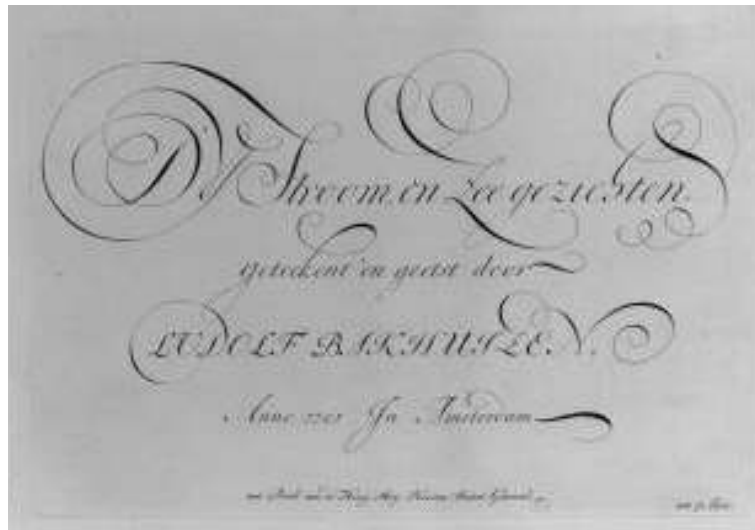 D'Y Stroom, en Zee gezichten.
Geteekent en geetst door
LUDOLF BAKHUIZEN.
Anno 1701 In Amsterdam